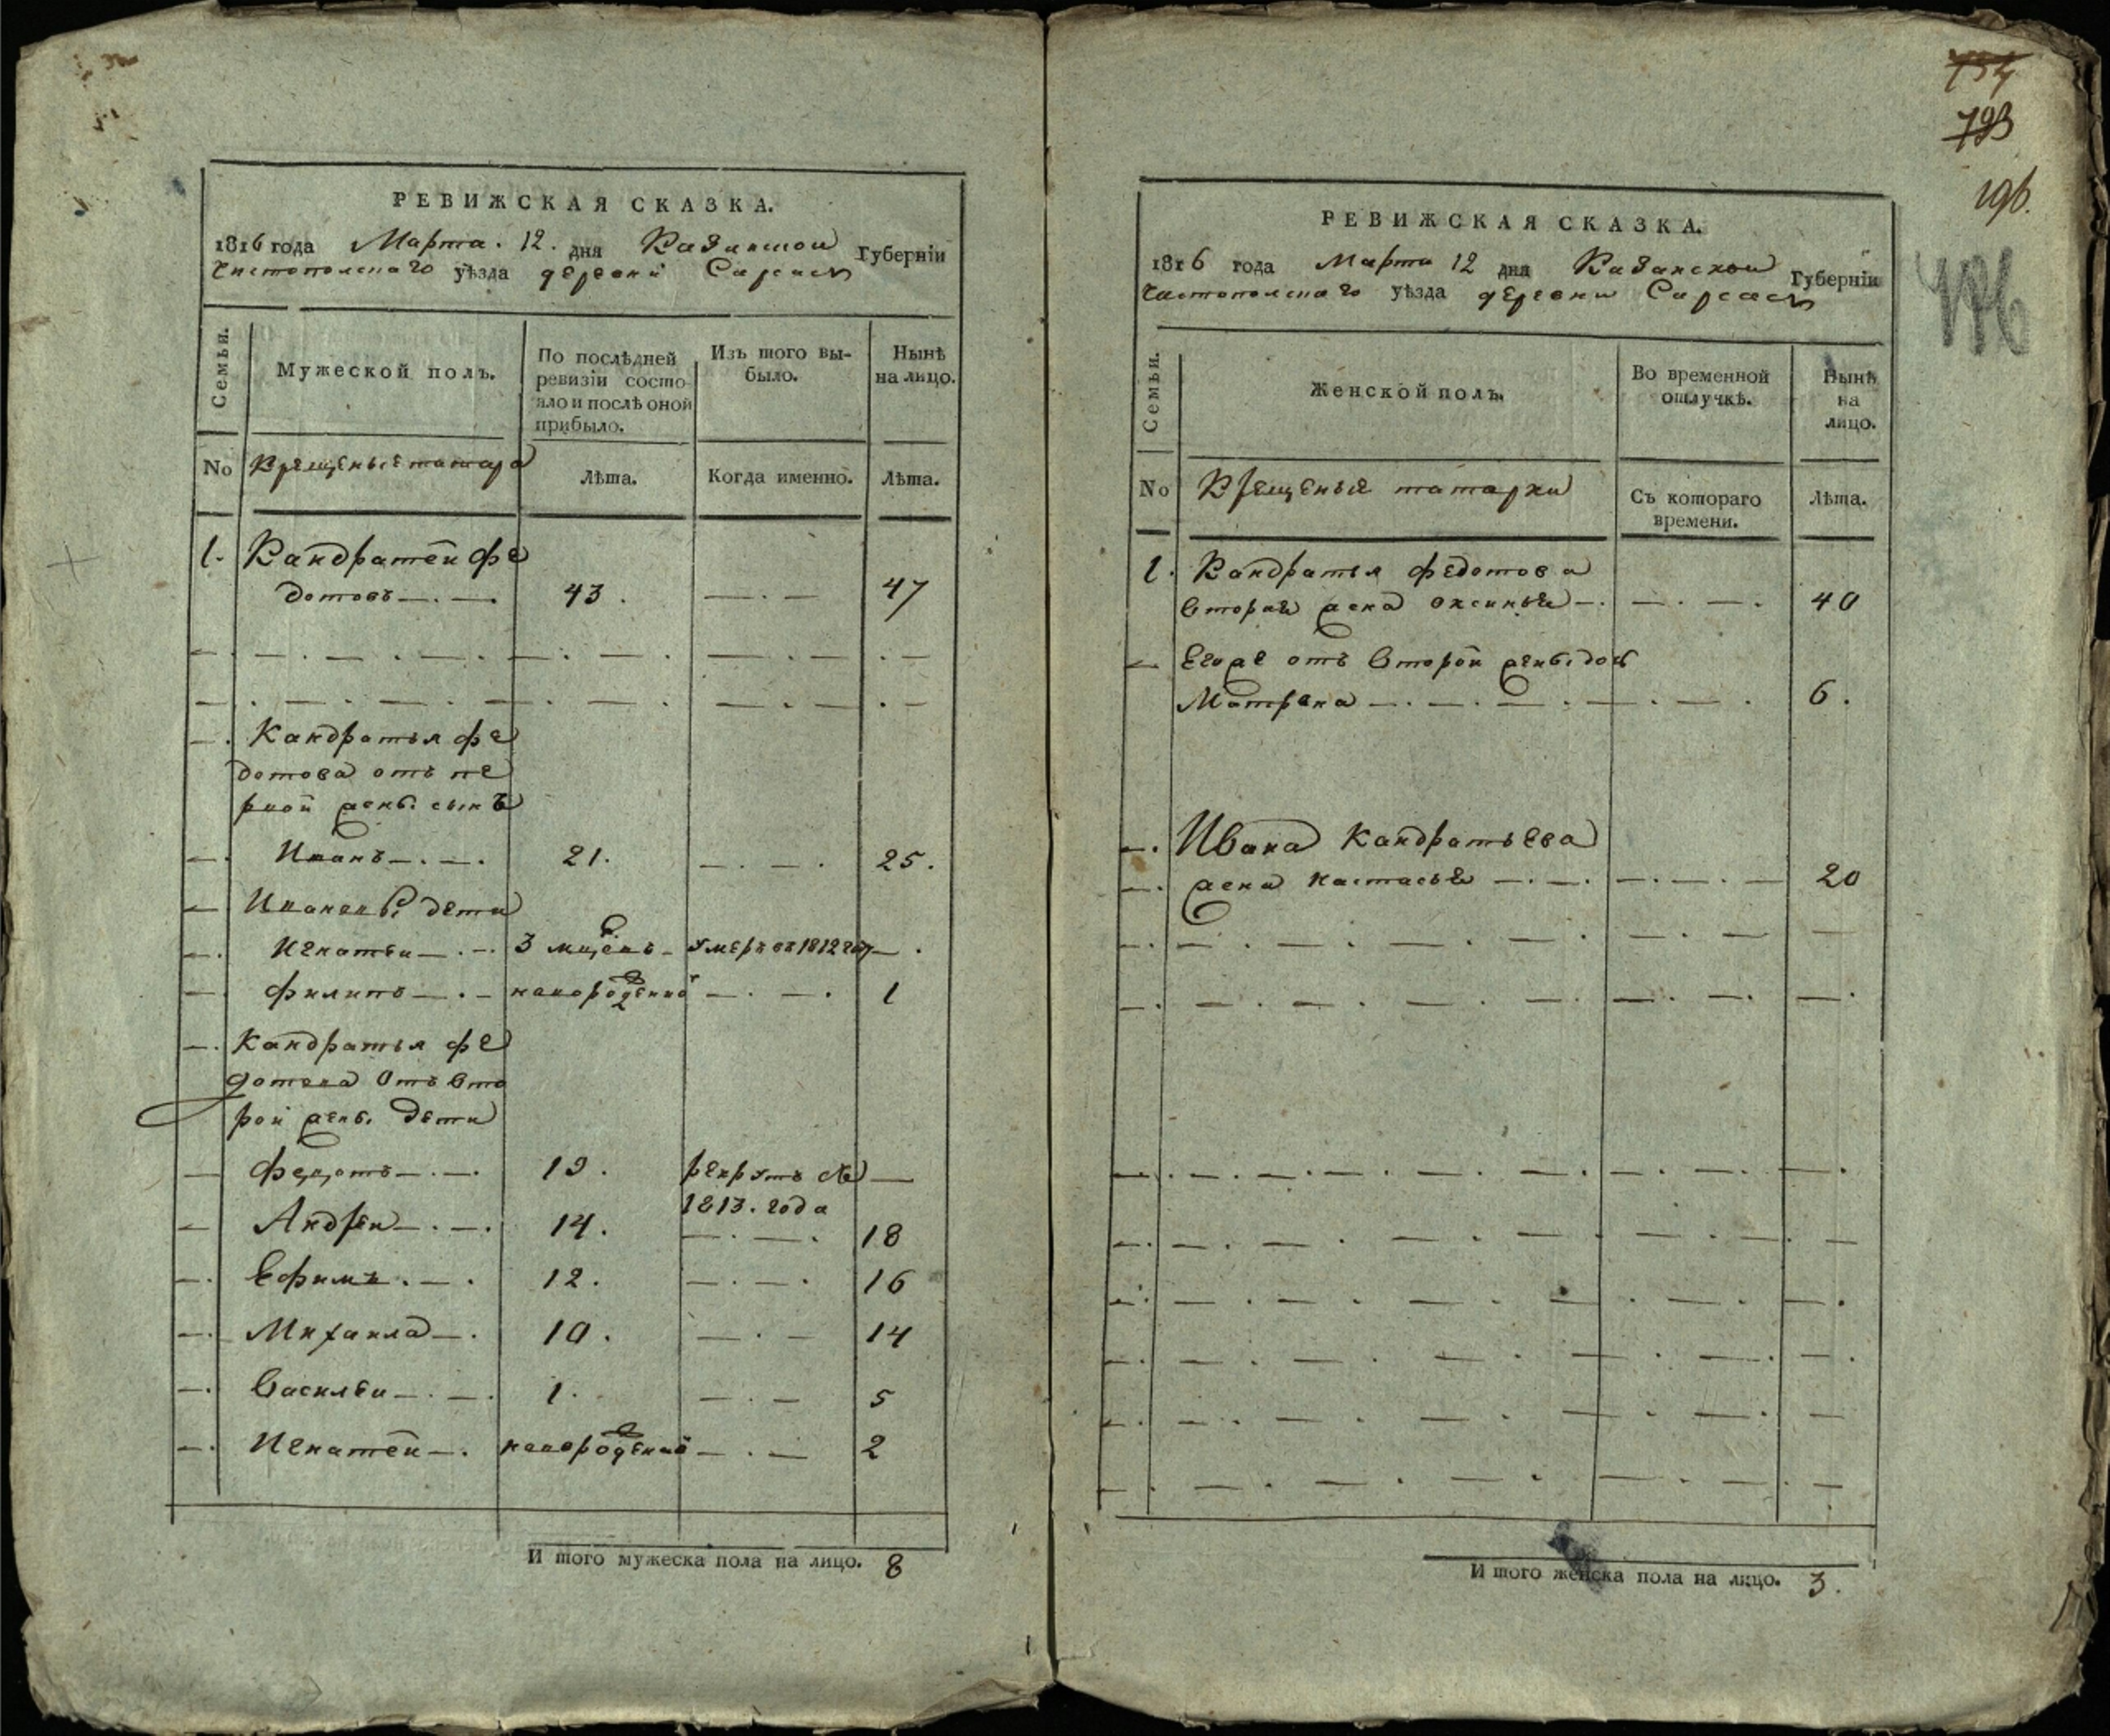 РЕВИЖСКАЯ СКАЗКА.
1816 года Марта. 12. дня Казанской Губерніи
Чистополскаго уѣзда деревни Сарсасъ
Семьи.
Мужеской полъ.
По послѣдней ревизіи состояло и послѣ оной прибыло.
Изъ того вы-было.
Нынѣ на лицо.
No
Крещеные татара
Лѣта.
Когда именно.
Лѣта.
1. Кандратей Фе
дотовъ 43. 47
Кандратья Фе
дотова отъ пе
рвой жены сынъ
Иванъ 21. 25.
Ивановы дети
Игнатеи 3 мцевъ умеръ въ 1812 году
Филипъ новорожденной 1
Кандратья Фе
дотова отъ вто
рой жены дети
Федотъ 19. рекрутъ съ
1813. года
Андреи 14. 18
Ефимъ 12. 16
Михаила 10. 14
Василеи 1. 5
Игнатей новорожденной 2
И того мужеска пола на лицо. 8
754
793
196.
196
РЕВИЖСКАЯ СКАЗКА.
1816 года Марта 12 дня Казанской Губерніи
Чистополскаго уѣзда деревни Сарсасъ
Семьи.
Женской полъ.
Во временной отлучкѣ.
Нынѣ на лицо.
No
Крещеные татарки
Съ котораго времени.
Лѣта.
1. Кандратья Федотова
вторая жена Оксинья 40
Егоже отъ второй жены дочь
Матрена 6.
Ивана Кандратьева
жена Настасья 20
И того женска пола на лицо. 3.